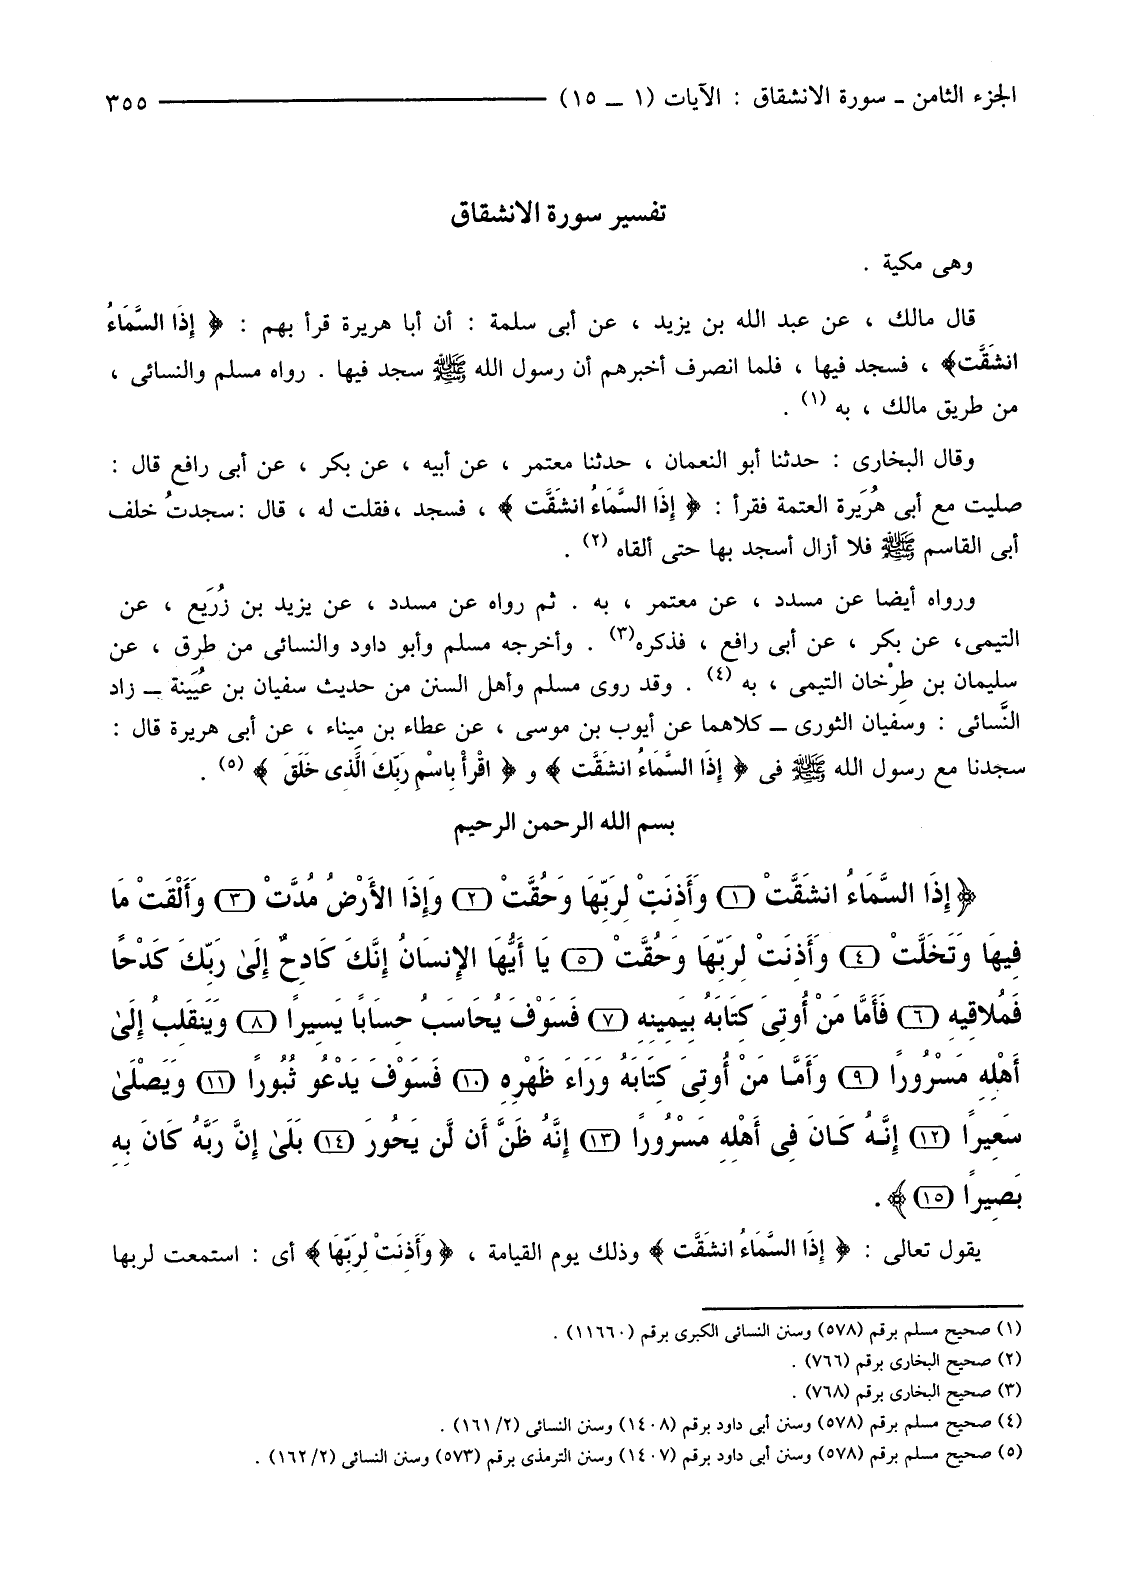 الجزء الثامن ـ سورة الانشقاق : الآيات (١ ــ ١٥) ٣٥٥
تفسير سورة الانشقاق
وهى مكية .
قال مالك ، عن عبد الله بن يزيد ، عن أبى سلمة : أن أبا هريرة قرأ بهم : ﴿ إِذَا السَّمَاءُ
انشَقَّت﴾ ، فسجد فيها ، فلما انصرف أخبرهم أن رسول الله ﷺ سجد فيها . رواه مسلم والنسائى ،
من طريق مالك ، به (١) .
وقال البخارى : حدثنا أبو النعمان ، حدثنا معتمر ، عن أبيه ، عن بكر ، عن أبى رافع قال :
صليت مع أبى هُرَيرة العتمة فقرأ : ﴿ إِذَا السَّمَاءُ انشَقَّت ﴾ ، فسجد ،فقلت له ، قال :سجدتُ خلف
أبى القاسم ﷺ فلا أزال أسجد بها حتى ألقاه (٢) .
ورواه أيضا عن مسدد ، عن معتمر ، به . ثم رواه عن مسدد ، عن يزيد بن زُرَيع ، عن
التيمى، عن بكر ، عن أبى رافع ، فذكره(٣) . وأخرجه مسلم وأبو داود والنسائى من طرق ، عن
سليمان بن طِرْخان التيمى ، به (٤) . وقد روى مسلم وأهل السنن من حديث سفيان بن عُيَينة ــ زاد
النَّسائى : وسفيان الثورى ــ كلاهما عن أيوب بن موسى ، عن عطاء بن ميناء ، عن أبى هريرة قال :
سجدنا مع رسول الله ﷺ فى ﴿ إِذَا السَّمَاءُ انشَقَّت ﴾ و ﴿ اقْرأْ بِاسْمِ رَبِّكَ الَّذِى خَلَقَ ﴾ (٥) .
بسم الله الرحمن الرحيم
﴿إِذَا السَّمَاءُ انشَقَّتْ (١) وَأَذِنَتْ لِرَبِّهَا وَحُقَّتْ (٢) وَإِذَا الأَرْضُ مُدَّتْ (٣) وَأَلْقَتْ مَا
فِيهَا وَتَخَلَّتْ (٤) وَأَذِنَتْ لِرَبِّهَا وَحُقَّتْ (٥) يَا أَيُّهَا الإِنسَانُ إِنَّكَ كَادِحٌ إِلَىٰ رَبِّكَ كَدْحًا
فَمُلاقِيهِ (٦) فَأَمَّا مَنْ أُوتِىَ كِتَابَهُ بِيَمِينِهِ (٧) فَسَوْفَ يُحَاسَبُ حِسَابًا يَسِيرًا (٨) وَيَنقَلِبُ إِلَىٰ
أَهْلِهِ مَسْرُورًا (٩) وَأَمَّا مَنْ أُوتِىَ كِتَابَهُ وَرَاءَ ظَهْرِهِ (١٠) فَسَوْفَ يَدْعُو ثُبُورًا (١١) وَيَصْلَىٰ
سَعِيرًا (١٢) إِنَّهُ كَانَ فِى أَهْلِهِ مَسْرُورًا (١٣) إِنَّهُ ظَنَّ أَن لَّن يَحُورَ (١٤) بَلَىٰ إِنَّ رَبَّهُ كَانَ بِهِ
بَصِيرًا (١٥)﴾.
يقول تعالى : ﴿ إِذَا السَّمَاءُ انشَقَّت ﴾ وذلك يوم القيامة ، ﴿وَأَذِنَتْ لِرَبِّهَا ﴾ أى : استمعت لربها
(١) صحيح مسلم برقم (٥٧٨) وسنن النسائى الكبرى برقم (١١٦٦٠) .
(٢) صحيح البخارى برقم (٧٦٦) .
(٣) صحيح البخارى برقم (٧٦٨) .
(٤) صحيح مسلم برقم (٥٧٨) وسنن أبى داود برقم (١٤٠٨) وسنن النسائى (٢/ ١٦١) .
(٥) صحيح مسلم برقم (٥٧٨) وسنن أبى داود برقم (١٤٠٧) وسنن الترمذى برقم (٥٧٣) وسنن النسائى (٢/ ١٦٢) .